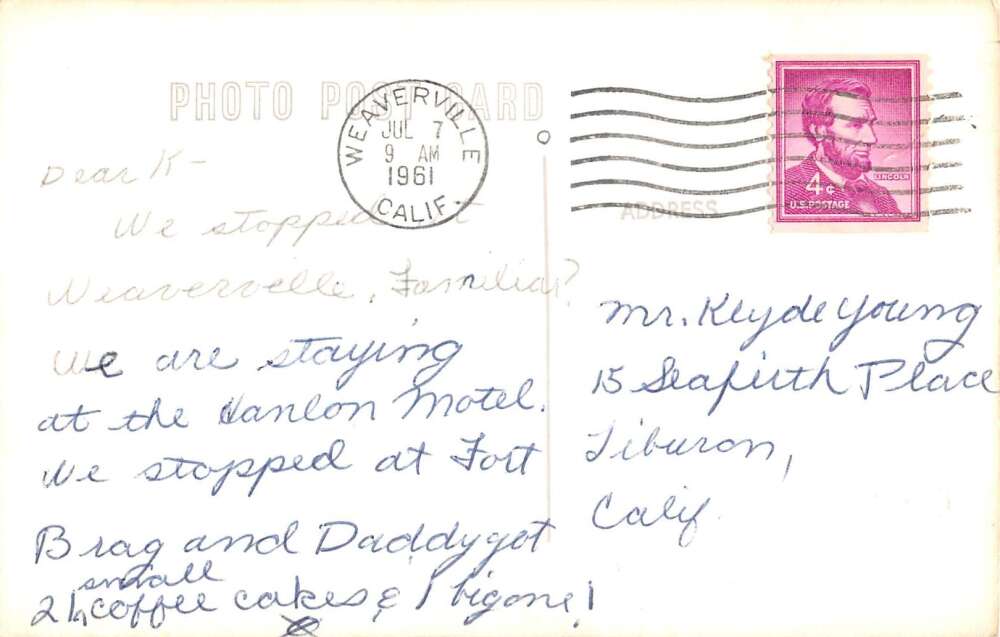 PHOTO POST CARD
WEAVERVILLE
JUL 7
9 AM
1961
CALIF.
LINCOLN
4¢
U.S. POSTAGE
ADDRESS
Dear K-
We stopped at
Weaverville, Familiar?
We are staying
at the Hanlon Motel.
We stopped at Fort
Brag and Daddy got
2 small coffee cakes & 1 big one!
Mr. Klyde Young
15 Seafirth Place
Tiburon,
Calif.